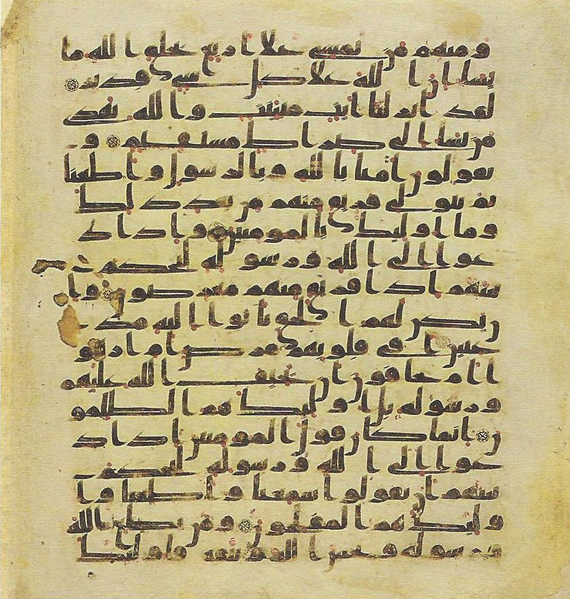 ومنهم من يمشي على اربع يخلق الله ما
يشا ان الله على كل شي قدير
لقد انزلنا ايت مبينت والله يهدي
من يشا الى صراط مستقيم و
يقولون امنا بالله وبالرسول واطعنا
ثم يتولى فريق منهم من بعد ذلك
وما اوليك بالمومنين واذا د
عوا الى الله ورسوله ليحكم
بينهم اذا فريق منهم معرضون وا
ن يكن لهم الحق ياتوا اليه مذ
عنين افي قلوبهم مرض ام ارتابو
ا ام يخافون ان يحيف الله عليهم
ورسوله بل اوليك هم الظلمو
ن انما كان قول المومنين اذا د
عوا الى الله ورسوله ليحكم
بينهم ان يقولوا سمعنا واطعنا وا
وليك هم المفلحون ومن يطع الله
ورسوله ويخش الله ويتقه فاوليك